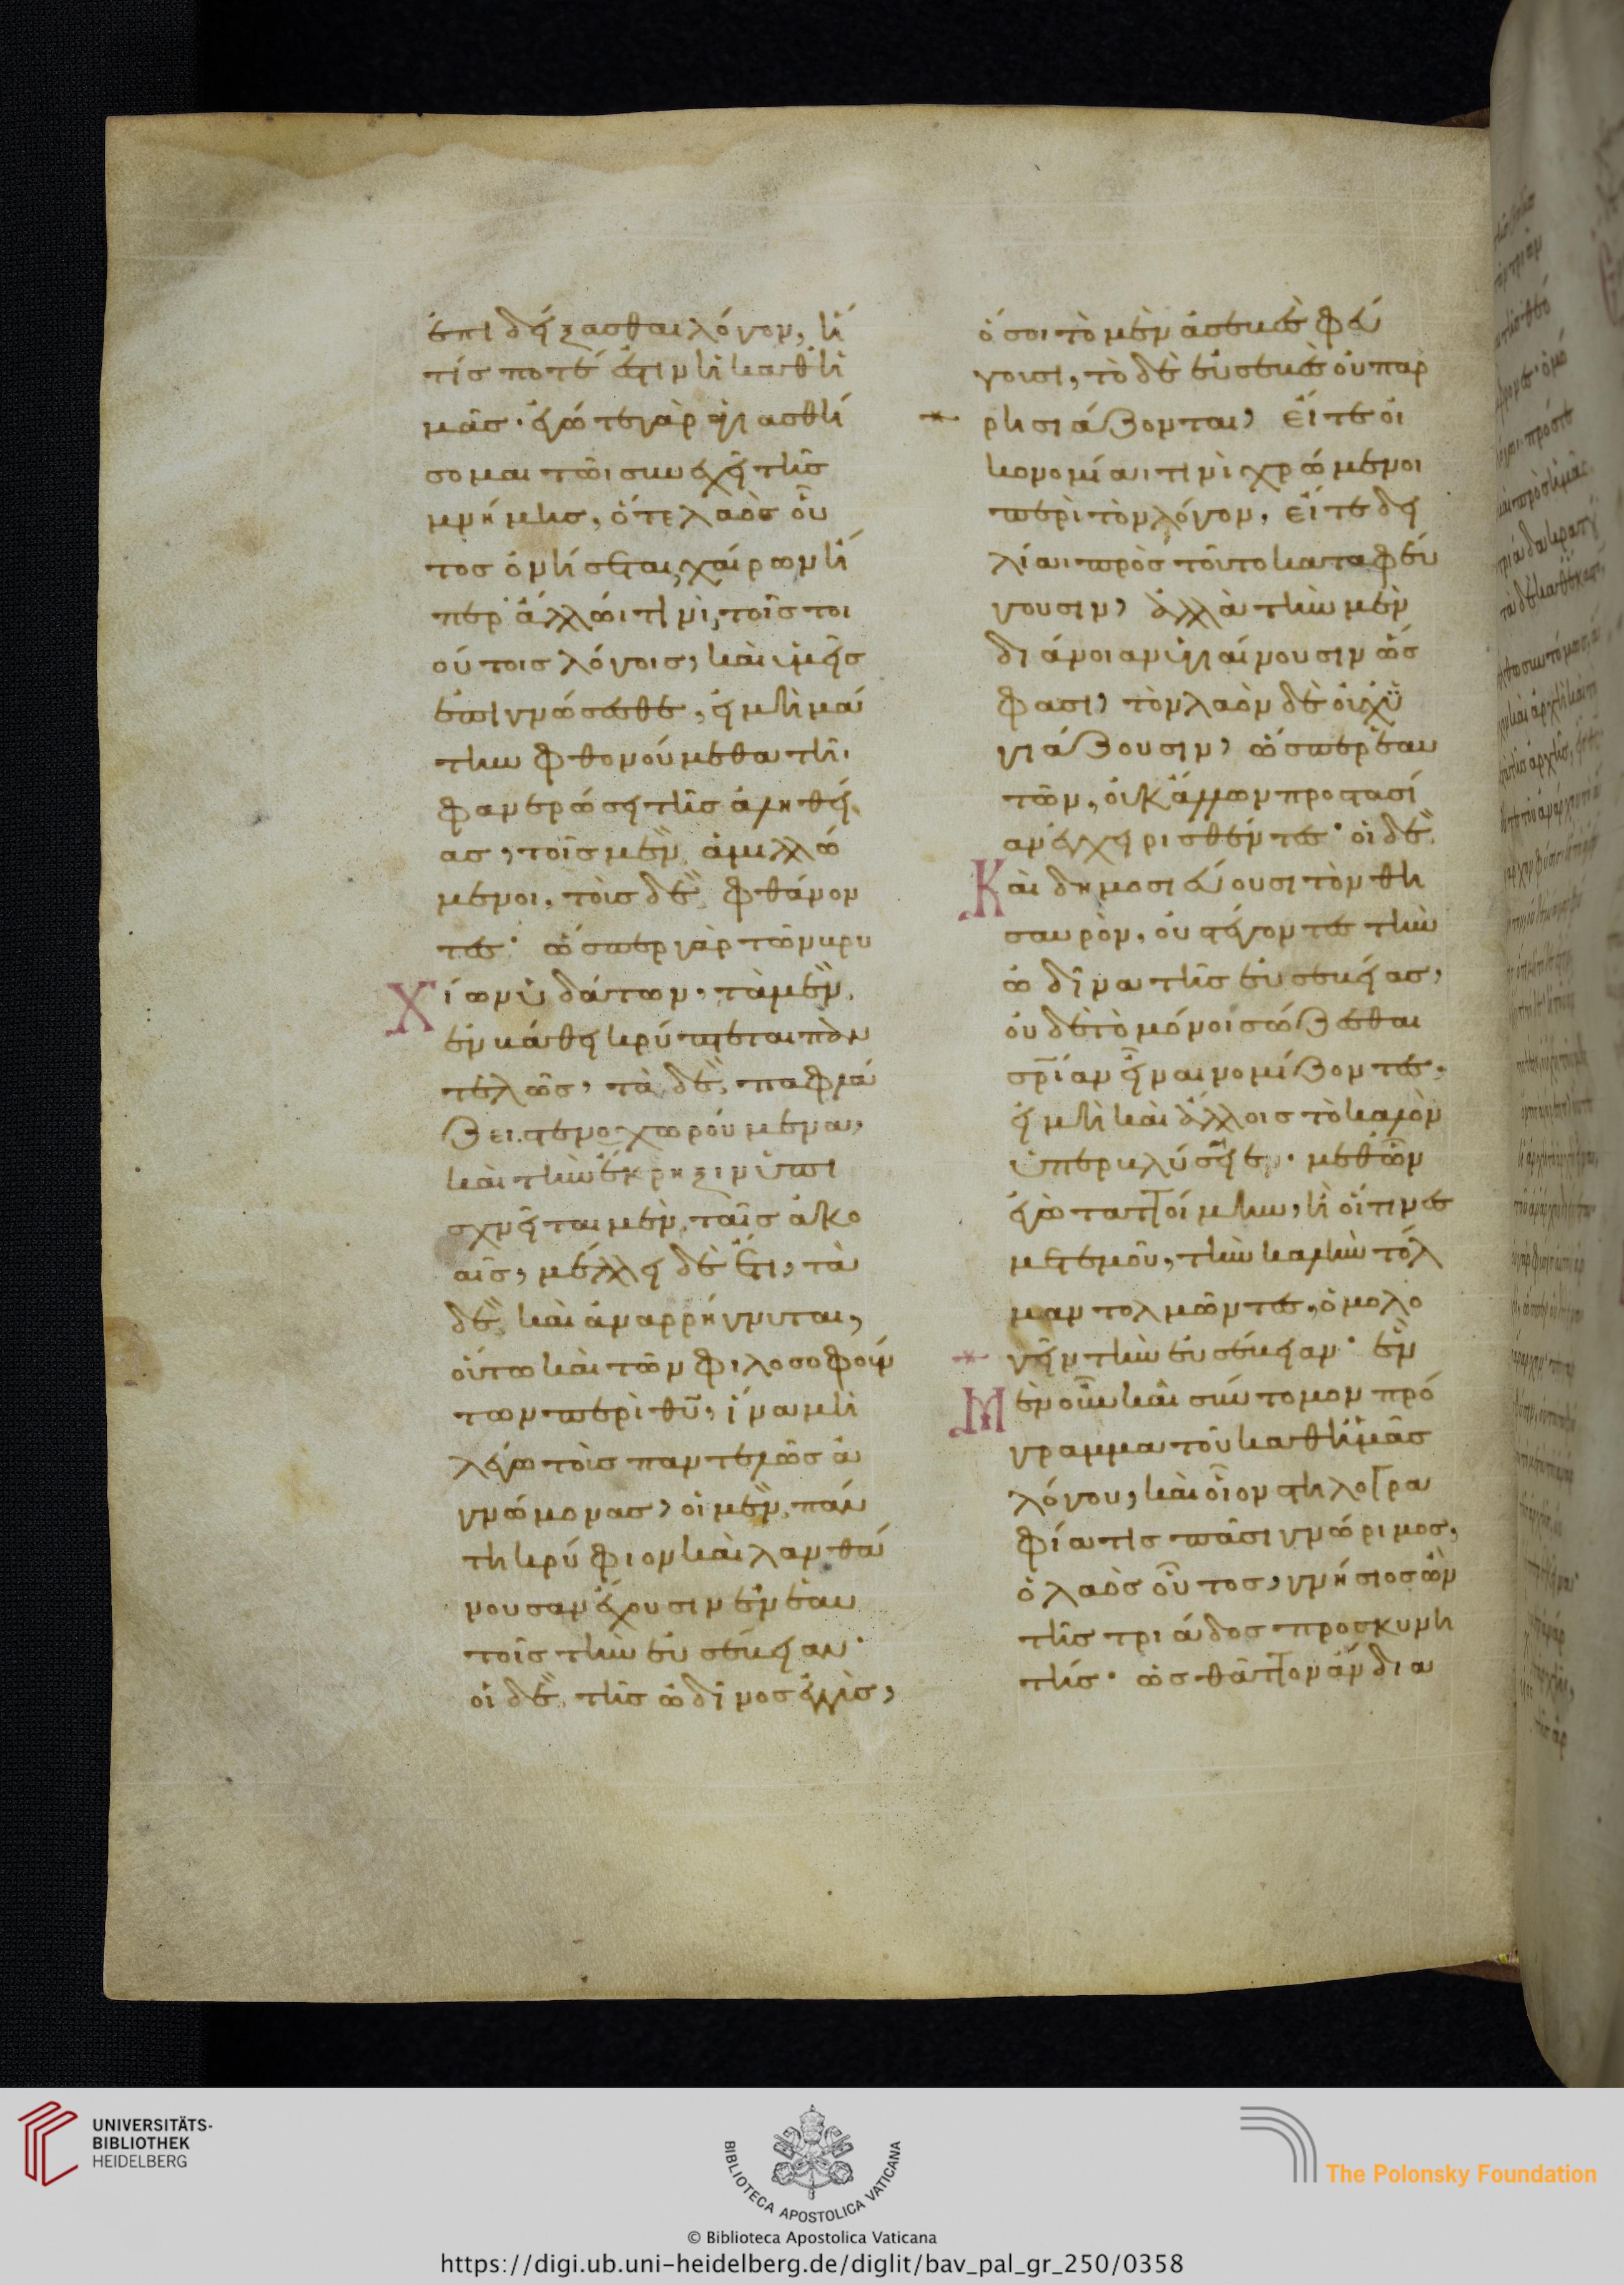 ἐπιδείξασθαι λόγον, ἤ
τίς ποτέ ἐστιν ἡ καθ ἡ
μᾶς· ἐγώ τε γὰρ ἡγιασθή
σομαι τῶι συνεχεῖ τῆς
μνήμης, ὅ τε λαὸς οὗ
τος ὀνήσεται, χαίρων εἴ
περ ἄλλωι τινὶ, τοῖς τοι
ούτοις λόγοις, καὶ ὑμεῖς
ἐπιγνώσεσθε, εἰ μὴ μά
την φθονούμεθα τῆι
φανερώσει τῆς ἀληθεί
ας, τοῖς μὲν ἁμιλλώ
μενοι, τοῖς δὲ φθάνον
τες· ὥσπερ γὰρ τῶν κρυ
χίων ὑδάτων, τὰ μὲν
ἐν βάθει κρύπτεται παν
τελῶς, τὰ δὲ παφλά
ζει στενοχωρούμενα,
καὶ τὴν ἔκρηξιν ὑπι
σχνεῖται μὲν ταῖς ἀκο
αῖς, μέλλει δὲ ἔτι, τὰ
δὲ καὶ ἀναρρήγνυται,
οὕτω καὶ τῶν φιλοσοφούν
των περὶ θῦ, ἵνα μὴ
λέγω τοὺς παντελῶς ἀ
γνώμονας, οἱ μὲν πάν
τη κρύφιον καὶ λανθά
νουσαν ἔχουσιν ἐν ἑαυ
τοῖς τὴν εὐσέβειαν·
οἱ δὲ τῆς ὠδῖνος ἐγγὺς,
ὅσοι τὸ μὲν ἀσεβὲς φεύ
γουσι, τὸ δὲ εὐσεβὲς οὐ παρ
ρησιάζονται, εἴτε οἰ
κονομίαι τινὶ χρώμενοι
περὶ τὸν λόγον, εἴτε δει
λίαι πρὸς τοῦτο καταφεύ
γουσιν, ἀλλὰ τὴν μὲν
διάνοιαν ὑγιαίνουσιν ὥς
φασι, τὸν λαὸν δὲ οὐχ ὑ
γιάζουσιν, ὥσπερ ἑαυ
τῶν, οὐκ ἄλλων προστασί
αν ἐγχειρισθέντες· οἱ δὲ
καὶ δημοσιεύουσι τὸν θη
σαυρὸν, οὐ στέγοντες τὴν
ὠδῖνα τῆς εὐσεβείας,
οὐδὲ τὸ μόνοι σώζεσθαι
σρίαν εἶναι νομίζοντες,
εἰ μὴ καὶ ἄλλοις τὸ καλὸν
ὑπερκλύσειε· μεθ ὧν
ἐγὼ ταττοίμην, ἢ οἵτινες
μετ ἐμοῦ, τὴν καλὴν τόλ
μαν τολμῶντες, ὁμολο
γεῖν τὴν εὐσέβειαν· ἓν
μὲν οὖν καὶ σύντομον πρό
γραμμα τοῦ καθ ἡμᾶς
λόγου, καὶ οἷον στηλογρα
φία τις πᾶσι γνώριμος,
ὁ λαὸς οὗτος, γνήσιος ὢν
τῆς τριάδος προσκυνη
τής· ὡς θᾶττον ἄν δια
UNIVERSITÄTS-
BIBLIOTHEK
HEIDELBERG
BIBLIOTECA APOSTOLICA VATICANA
© Biblioteca Apostolica Vaticana
The Polonsky Foundation
https://digi.ub.uni-heidelberg.de/diglit/bav_pal_gr_250/0358